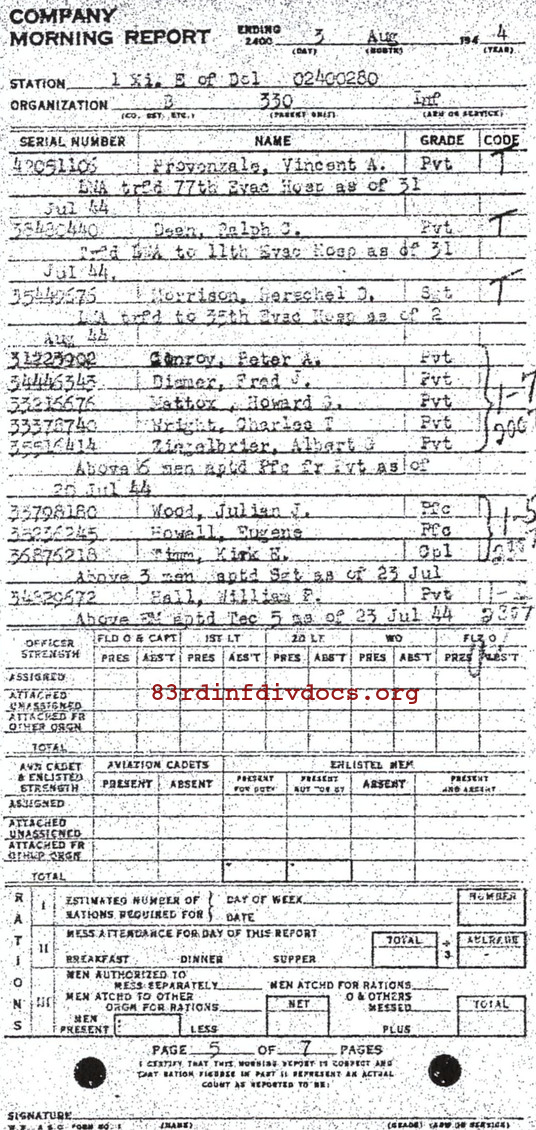 COMPANY
MORNING REPORT ENDING 2400 3 Aug 194 4
(DAY) (MONTH) (YEAR)
STATION 1 Mi. E of Dol 02400280
ORGANIZATION B 330 Inf
(CO. DET. ETC.) (PARENT UNIT) (ARM OR SERVICE)
SERIAL NUMBER NAME GRADE CODE
42051106 Provenzale, Vincent A. Pvt T
LWA trfd 77th Evac Hosp as of 31
Jul 44
Dean, Ralph C. Pvt T
Trfd LWA to 11th Evac Hosp as of 31
Jul 44.
35449676 Morrison, Herschel D. Sgt T
LWA trfd to 35th Evac Hosp as of 2
Aug 44
31223902 Conroy, Peter A. Pvt
34446343 Fred J. Pvt
33216676 Mattox, Howard G. Pvt
33378740 Wright, Charles T Pvt
35516414 Ziegelbrier, Albert G Pvt
Above 6 men aptd Pfc fr Pvt as of
20 Jul 44
33798180 Wood, Julian J. Pfc
35236245 Howell, Eugene Pfc
36876218 Timm, Kirk E. Cpl
Above 3 men aptd Sgt as of 23 Jul
34820672 Hall, William P. Pvt
Above EM aptd Tec 5 as of 23 Jul 44
OFFICER STRENGTH FLD O & CAPT 1ST LT 2D LT WO FLT O
PRES ABS'T PRES ABS'T PRES ABS'T PRES ABS'T PRES ABS'T
ASSIGNED
ATTACHED UNASSIGNED
ATTACHED FR OTHER ORGN
TOTAL
83rdinfdivdocs.org
AVN CADET & ENLISTED STRENGTH AVIATION CADETS ENLISTED MEN
PRESENT ABSENT PRESENT FOR DUTY PRESENT NOT FOR DY ABSENT PRESENT AND ABSENT
ASSIGNED
ATTACHED UNASSIGNED
ATTACHED FR OTHER ORGN
TOTAL
RATIONS
I ESTIMATED NUMBER OF RATIONS REQUIRED FOR DAY OF WEEK DATE NUMBER
II MESS ATTENDANCE FOR DAY OF THIS REPORT TOTAL ÷ 3 AVERAGE
BREAKFAST DINNER SUPPER
III MEN AUTHORIZED TO MESS SEPARATELY MEN ATCHD FOR RATIONS
MEN ATCHD TO OTHER ORGN FOR RATIONS NET O & OTHERS MESSED TOTAL
MEN PRESENT LESS PLUS
PAGE 5 OF 7 PAGES
I CERTIFY THAT THIS MORNING REPORT IS CORRECT AND
THAT RATION FIGURES IN PART II REPRESENT AN ACTUAL
COUNT AS REPORTED TO ME:
SIGNATURE
W.D., A.G.O. FORM NO. 1 (NAME) (GRADE) (ARM OR SERVICE)